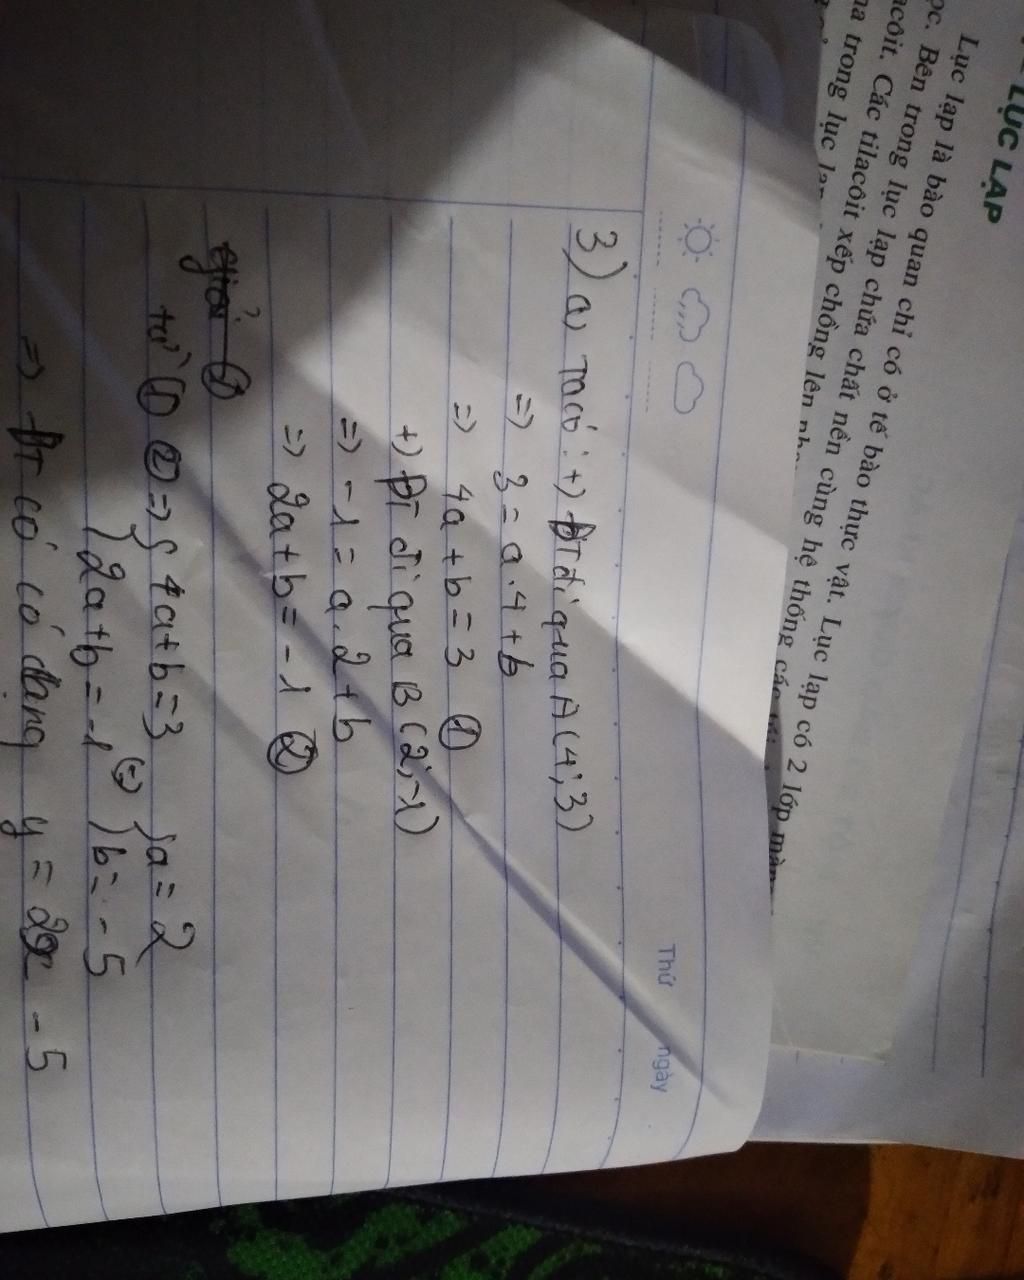 LỤC LẠP
Lục lạp là bào quan chỉ có ở tế bào thực vật. Lục lạp có 2 lớp màn
ọc. Bên trong lục lạp chứa chất nền cùng hệ thống các
acôit. Các tilacôit xếp chồng lên
na trong lục
Thứ ngày
3) a, Ta có: +) ĐT đi qua A(4;3)
=> 3 = a.4+b
=> 4a+b=3 ①
+) ĐT đi qua B(2;-1)
=> -1 = a.2+b
=> 2a+b=-1 ②
giải ①
từ ① ② => { 4a+b=3 { a=2
{ 2a+b=-1 (=) { b=-5
=> ĐT có có dạng y = 2x - 5